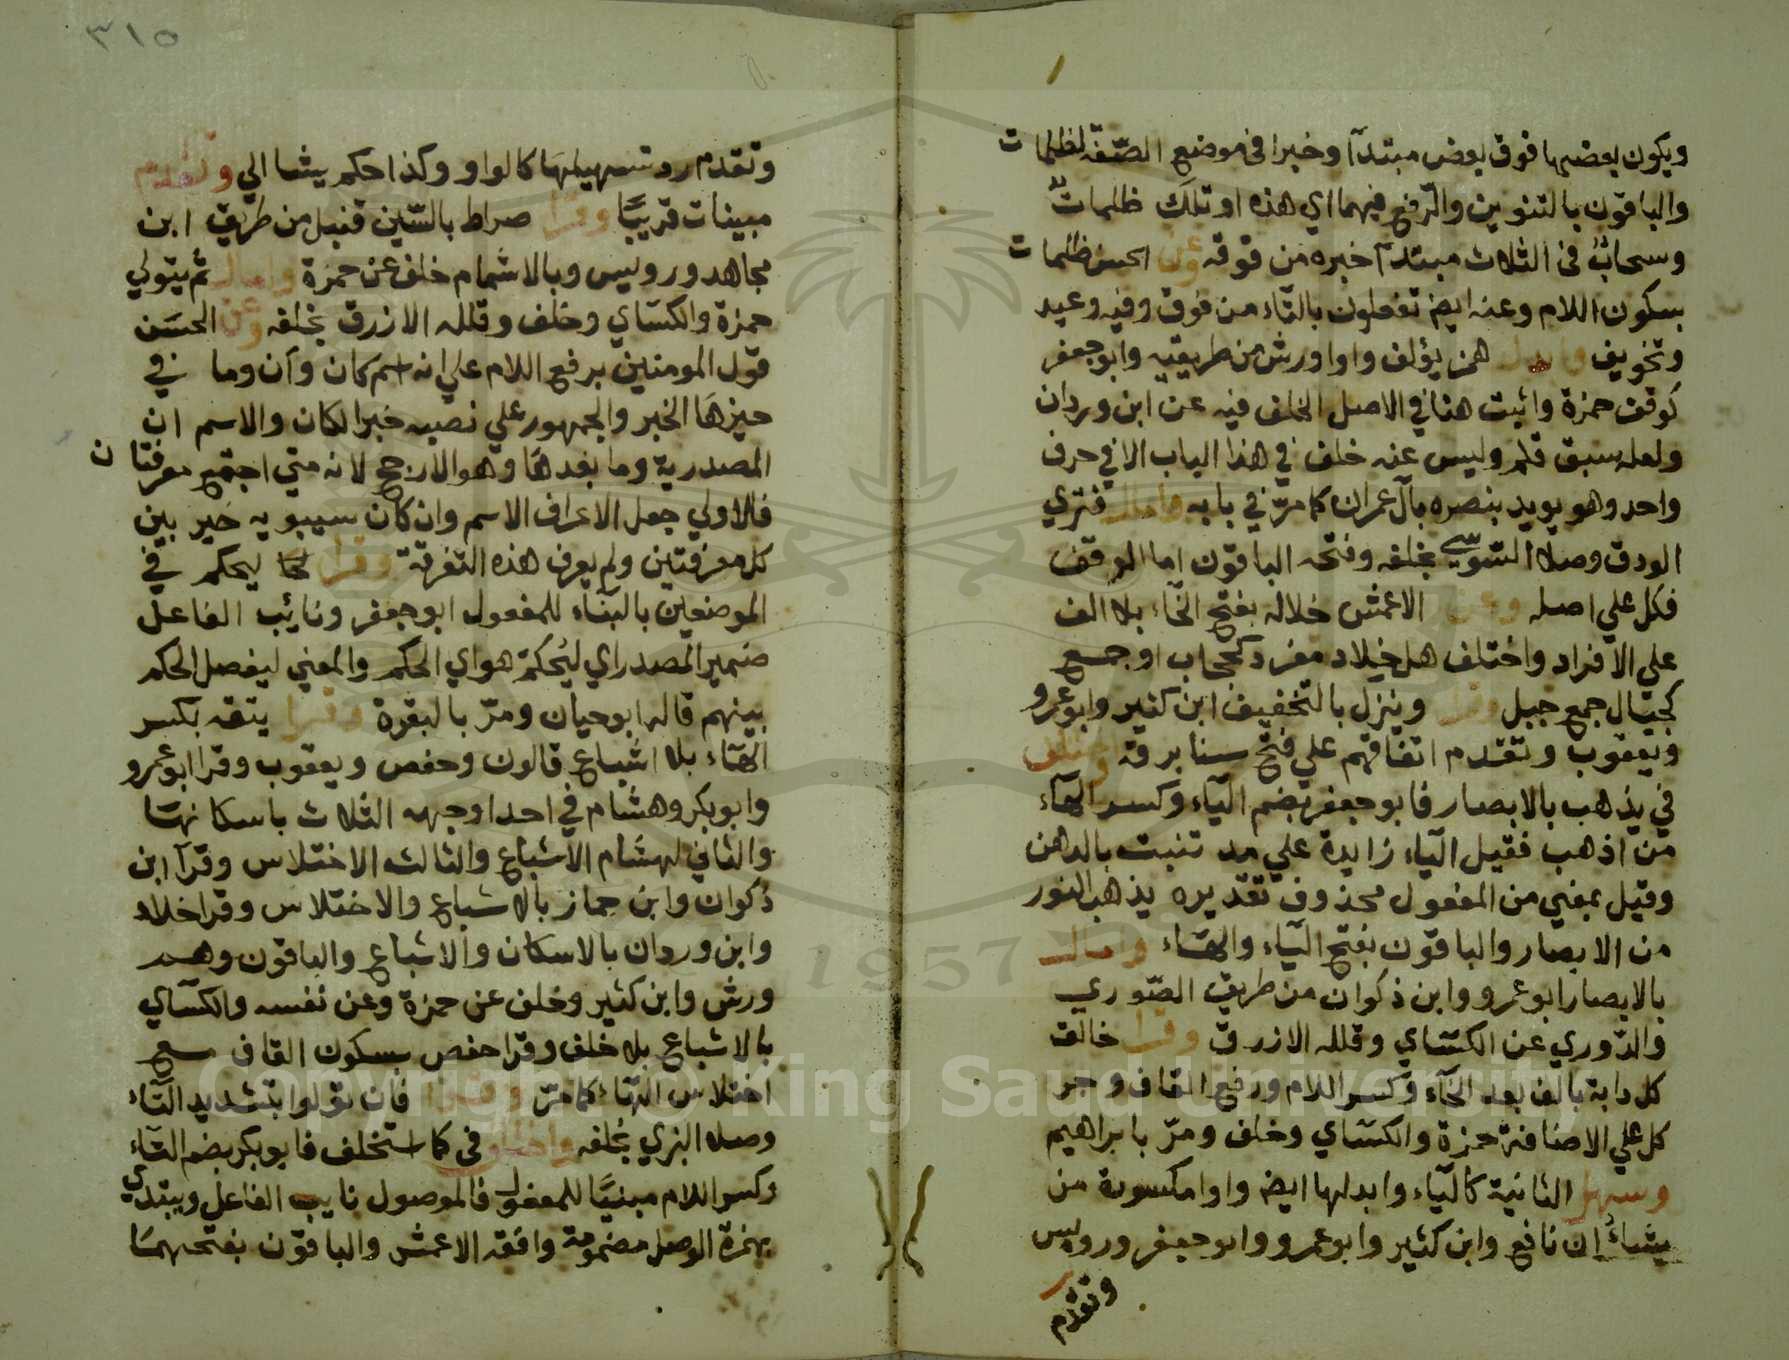 ويكون بعضها فوق بعض مبتدآ وخبرا في موضع الصفة لظلمات
والباقون بالتنوين والرفع فيهما اي هذه او تلك ظلمات
وسحابٌ في الثلاث مبتدآ خبره من فوقه وعن الحسن ظلمات
بسكون اللام وعنه ايض تفعلون بالتاء من فوق وفيه وعيد
وتخويف وابدل همز يؤلف واوا ورش من طريقيه وابو جعفر
كوقف حمزة واثبت هنا في الاصل الخلف فيه عن ابن وردان
ولعله سبق قلم وليس عنه خلف في هذا الباب الا في حرف
واحد وهو يويد بنصره بآل عمران كما مرّ في بابه وامال فتري
الودق وصلا السوسي بخلفه وفتحه الباقون اما الوقف
فكل علي اصله وعن الاعمش خلاله بفتح الخآء بلا الف
علي الافراد واختلف هل خلال مفرد كحجاب او جمع
كجبال جمع جبل وقرا وينزل بالتخفيف ابن كثير وابو عمرو
ويعقوب وتقدم اتفاقهم علي فتح سنا برقه واختلف
في يذهب بالابصار فابو جعفر بضم اليآء وكسر الهآء
من اذهب فقيل اليآء زايدة علي حد تنبت بالدهن
وقيل بمعني من المفعول محذوف تقديره يذهب النور
من الابصار والباقون بفتح اليآء والهآء وامال
بالابصار ابو عمرو وابن ذكوان من طريق الصوري
والدوري عن الكسآي وقلله الازرق وقرا خالق
كل دابة بالف بعد الخآء وكسر اللام ورفع القاف وجر
كل علي الاضافة حمزة والكسآي وخلف ومرّ بابراهيم
وسهل الثانية كاليآء وابدلها ايض واوا مكسورة من
يشآءُ اِن نافع وابن كثير وابو عمرو وابو جعفر ورويس
وتقدم
٣١٥
وتقدم رد تسهيلها كالواو وكذا حكم يشا الي وتقدم
مبينات قريبًا وقرا صراط بالسّين قنبل من طريق ابن
مجاهد ورويس وبالاشمام خلف عن حمزة وامال ثم يتولي
حمزة والكسآي وخلف وقلله الازرق بخلفه وعن الحسَن
قوْل المومنين برفع اللام علي انه اسم كان واَن وما في
حيزها الخبر والجمهور علي نصبه خبرا لكان والاسم ان
المصدرية وما بعدها وهو الارجح لانه متي اجتمع معرفتان
فالاولي جعل الاعراف الاسم وان كان سيبويه خير بين
كل معرفتين ولم يعرف هذه التفرقة وقرا ليحكم في
الموضعين بالبنآء للمفعول ابو جعفر ونايب الفاعل
ضمير المصدر اي ليُحكمَ هو اي الحكم والمعني ليفصل الحكم
بينهم قاله ابو حيان ومرّ بالبقرة وقرا يتقه بكسر
الهآء بلا اشباع قالون وحفص ويعقوب وقرا ابو عمرو
وابو بكر وهشام في احد اوجهه الثلاث باسكانها
والثاني لهشام الاشباع والثالث الاختلاس وقرا ابن
ذكوان وابن جماز بالاشباع والاختلاس وقرا خلاد
وابن وردان بالاسكان والاشباع والباقون وهم
ورش وابن كثير وخلف عن حمزة وعن نفسه والكسآي
بالاشباع بلا خلف وقرا حفص بسكون القاف مع
اختلاس الهآء كما مرّ وقرا فان تولوا بتشديد التآء
وصلا البزي بخلفه واختلف في كما استخلف فابو بكر بضم التآء
وكسر اللام مبنيًا للمفعول فالموصول نايب الفاعل ويبتدي
بهمزة الوصل مضمومة وافقه الاعمش والباقون بفتحهما
Copyright © King Saud University
1957